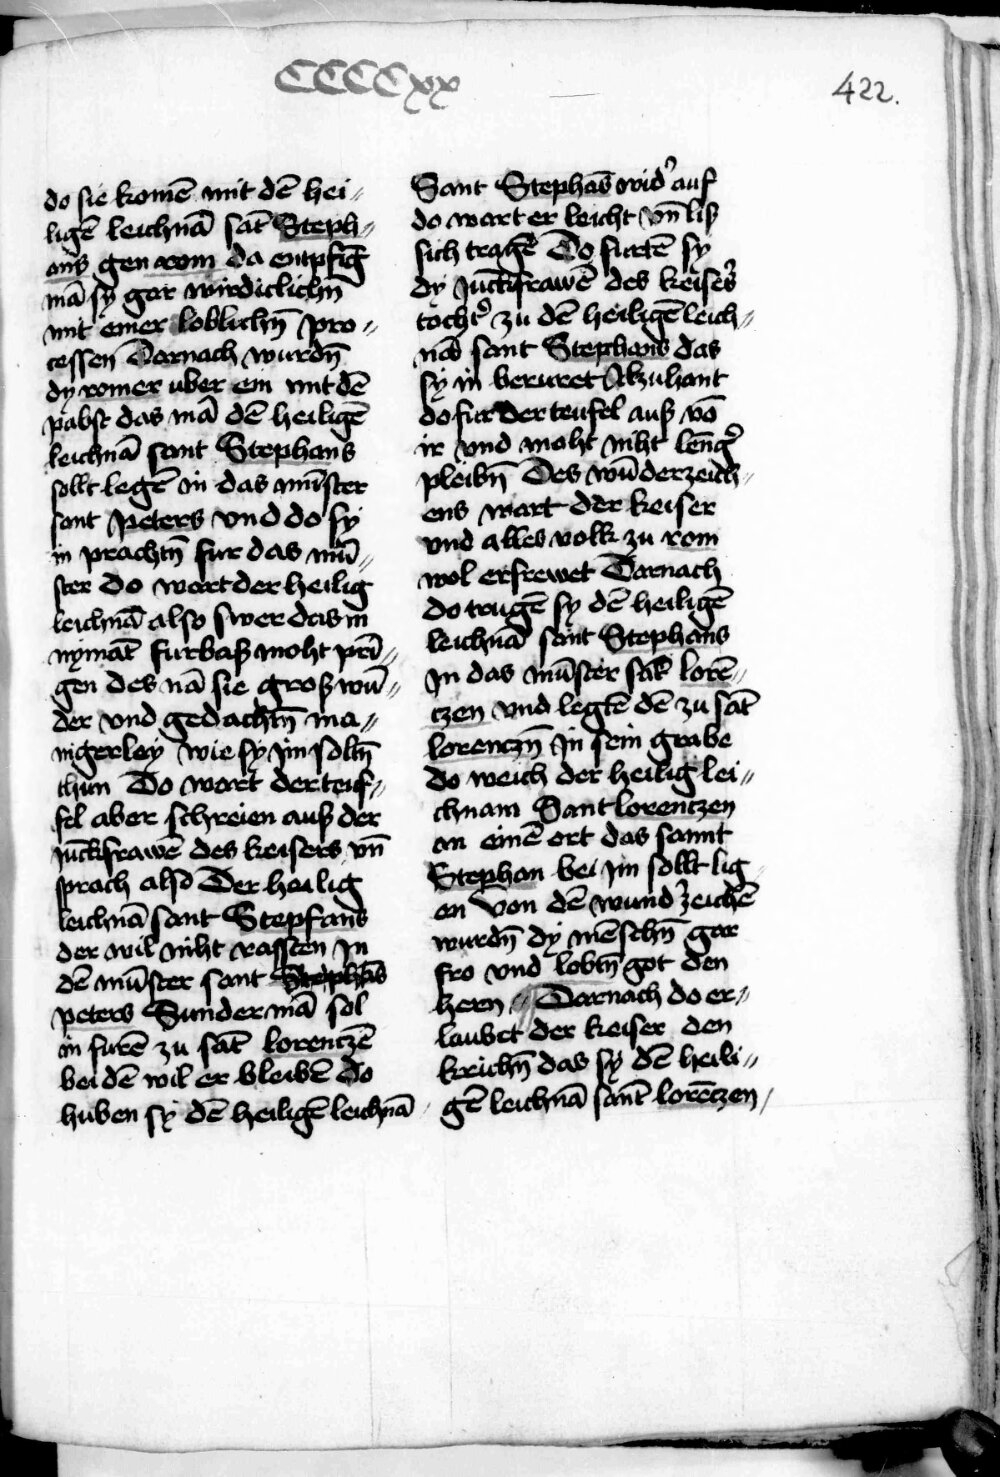 CCCCxx
422.
do sie komē mit dē hei⸗
ligē leichnā sāt Steph⸗
ans gen rom da entpfīg
mā sy gar wirdiclichn̄
mit einer loblichn̄ pro⸗
cessen Darnach wurdn̄
dy romer uber ein mit dē
pabst das mā dē heiligē
leichnā sant Stephans
sollt legē in das mūster
sant peters vnd do sy
in prachtn̄ fur das mū⸗
ster do wart der heilig
leichnā also swer das in
nymāt furbaß moht prī⸗
gen des nā sie groß wū⸗
der vnd gedachtn̄ ma⸗
nigerley wie sy im soltn̄
thun Do wart der teuf⸗
fel aber schreien auß der
juckfrawē des keisers vn̄
sprach also Der heilig
leichnā sant Stepfans
der wil niht rassten Jn
dē mūster sant Stephās
peters Sunder mā sol
in furē zu sāt lorentzē
bei dē wil er bleibē Do
huben sy dē heiligē leichnā
Sant Stephās wid᷑ auf
do wart er leicht vn̄ liß
sich tragē Do furtē sy
dy juckfrawē des keise᷑s
tocht᷑ zu dē heiligē leich⸗
nā sant Stephans das
sy in beruret Alzuhant
do fur der teufel auß vō
ir vnd moht niht leng᷑
pleibn̄ Des wūderzeich⸗
ens wart der keiser
vnd alles volk zu rom
wol erfrewet Darnach
do trugē sy dē heiligē
leichnā sant Stephans
Jn das mūster sāt lorē⸗
czen vnd legtē dē zu sāt
lorenczn̄ Jn sein grabe
do weich der heilig lei⸗
chnam Sant lorentzen
an einē ort das sannt
Stephan bei im sollt lig
en Von dē wund᷑zeichē
wurdn̄ dy mēschn̄ gar
fro vnd lobtn̄ got den
hern Darnach do er⸗
laubet der keiser den
krichn̄ das sy dē heili⸗
gē leichnā sant lorētzen